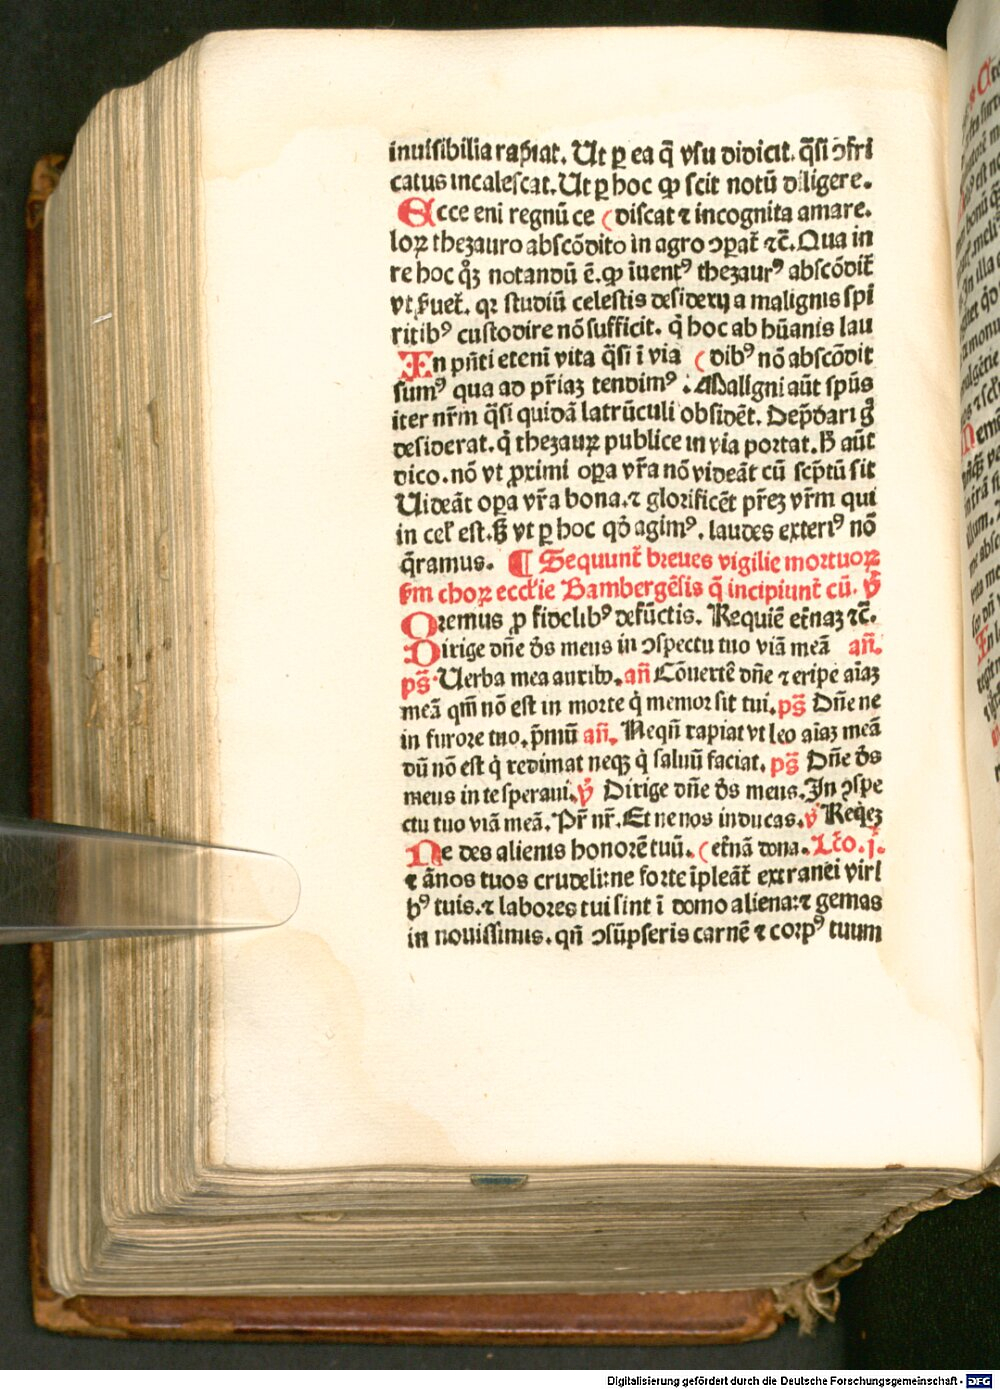 inuisibilia rapiat. Ut ꝑ ea q̄ vsu didicit. q̄si ↄfri
catus incalescat. Ut ꝑ hoc ꝙ scit notū diligere.
Ecce eni regnū ce (discat ⁊ incognita amare.
loꝝ thezauro abscōdito in agro ↄpat̄ ⁊c̄. Qua in
re hoc qͦꝫ notandū ē. ꝙ iuentꝰ thezaurꝰ abscōdit̄
vt ẜuet̄. qꝛ studiū celestis desiderij a malignis spi
ritibꝰ custodire nō sufficit. q̇ hoc ab hūanis lau
In pn̄ti eteni vita q̄si ī via (dibꝰ nō abscōdit
sumꝰ qua ad pr̄iaꝫ tendimꝰ. Maligni aūt spūs
iter nr̄m q̄si quidā latrūculi obsidēt. Dep̄dari g̊
desiderat. q̇ thezauꝝ publice in via portat. H̄ aūt
dico. nō vt ꝓximi oꝑa vr̄a nō videāt cū scp̄tū sit
Uideāt oꝑa vr̄a bona. ⁊ glorificēt pr̄eꝫ vr̄m qui
in cel̄ est. ẜ vt ꝑ hoc qd̓ agimꝰ. laudes exteriꝰ nō
q̄ramus. ¶ Sequunt̄ breues vigilie mortuoꝝ
ẜm choꝝ eccl̄ie Bambergēsis q̄ incipiunt̄ cū. ℣
Oremus ꝓ fidelibꝰ defūctis. Requiē et̄naꝫ ⁊c̄.
Dirige dn̄e ds̄ meus in ↄspectu tuo viā meā an̄.
ps̄ Uerba mea auribꝰ. an̄ Cōuertē dn̄e ⁊ eripe aīaꝫ
meā qm̄ nō est in morte q̇ memor sit tui. ps̄ Dn̄e ne
in furore tuo. p̄mū an̄. Neqn̄ rapiat vt leo aīaꝫ meā
dū nō est q̇ redimat neqꝫ q̇ saluū faciat. ps̄ Dn̄e ds̄
meus in te speraui. ℣ Dirige dn̄e ds̄ meus. In ↄspe
ctu tuo viā meā. Pr̄ nr̄. Et ne nos inducas. ℣ Req̇eꝫ
Ne des alienis honorē tuū. (et̄nā dona. Lc̄o. j.
⁊ ānos tuos crudeli: ne forte īpleāt̄ extranei viri
bꝰ tuis. ⁊ labores tui sint ī domo aliena: ⁊ gemas
in nouissimis. qn̄ ↄsūpseris carnē ⁊ corpꝰ tuum
Digitalisierung gefördert durch die Deutsche Forschungsgemeinschaft - DFG